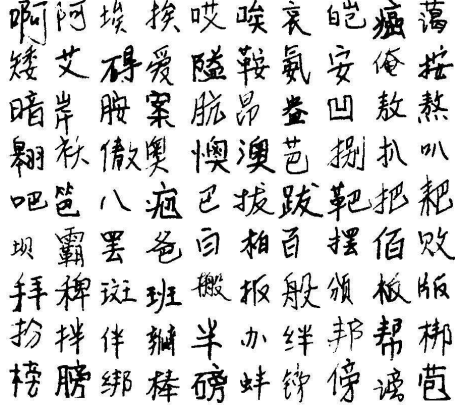 啊阿埃挨哎唉哀皑癌蔼
矮艾碍爱隘鞍氨安俺按
暗岸胺案肮昂盎凹敖熬
翱袄傲奥懊澳芭捌扒叭
吧笆八疤巴拔跋靶把耙
坝霸罢爸白柏百摆佰败
拜稗斑班搬扳般颁板版
扮拌伴瓣半办绊邦帮梆
榜膀绑棒磅蚌镑傍谤苞